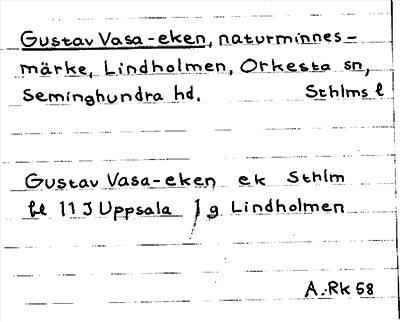 Gustav Vasa-eken, naturminnes-
märke, Lindholmen, Orkesta sn,
Seminghundra hd. Sthlms l
Gustav Vasa-eken ek Sthlm
bl 11 I Uppsala / g Lindholmen
A. Rk 58